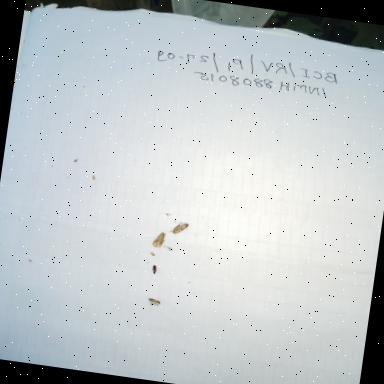 BCI/RV/P1/27-09
INMH 8808015